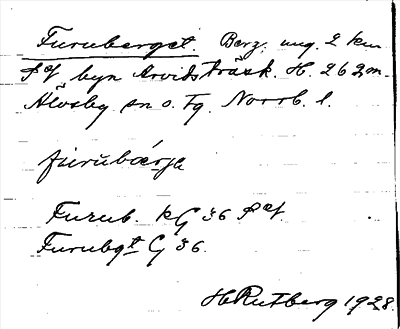 Furuberget. Berg. ung. 2 km
S of byn Arvidsträsk. H. 262 m.
Älvsby sn o. Tg. Norrb. l.
furubærje
Furub. KG 36 S of.
Furubgt G 36.
H Rutberg 1928.